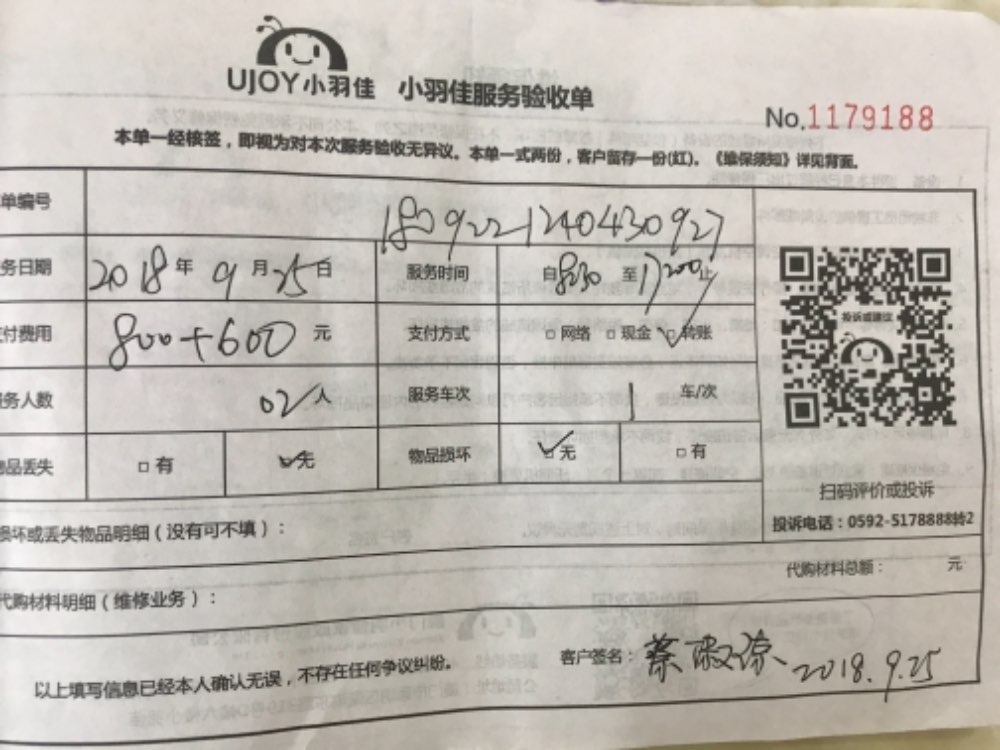 UJOY小羽佳 小羽佳服务验收单
No.1179188
本单一经核签，即视为对本次服务验收无异议。本单一式两份，客户留存一份(红)。《维保须知》详见背面。
单编号 1809221240430927
务日期 2018年 9月25日 服务时间 自830至1700止
付费用 800+600 元 支付方式 □网络 □现金 ☑转账
投诉或建议
服务人数 02人 服务车次 1 车/次
物品丢失 □有 ☑无 物品损坏 ☑无 □有
扫码评价或投诉
投诉电话：0592-5178888转2
损坏或丢失物品明细（没有可不填）：
代购材料总额： 元
代购材料明细（维修业务）：
以上填写信息已经本人确认无误，不存在任何争议纠纷。
客户签名： 蔡 2018.9.25